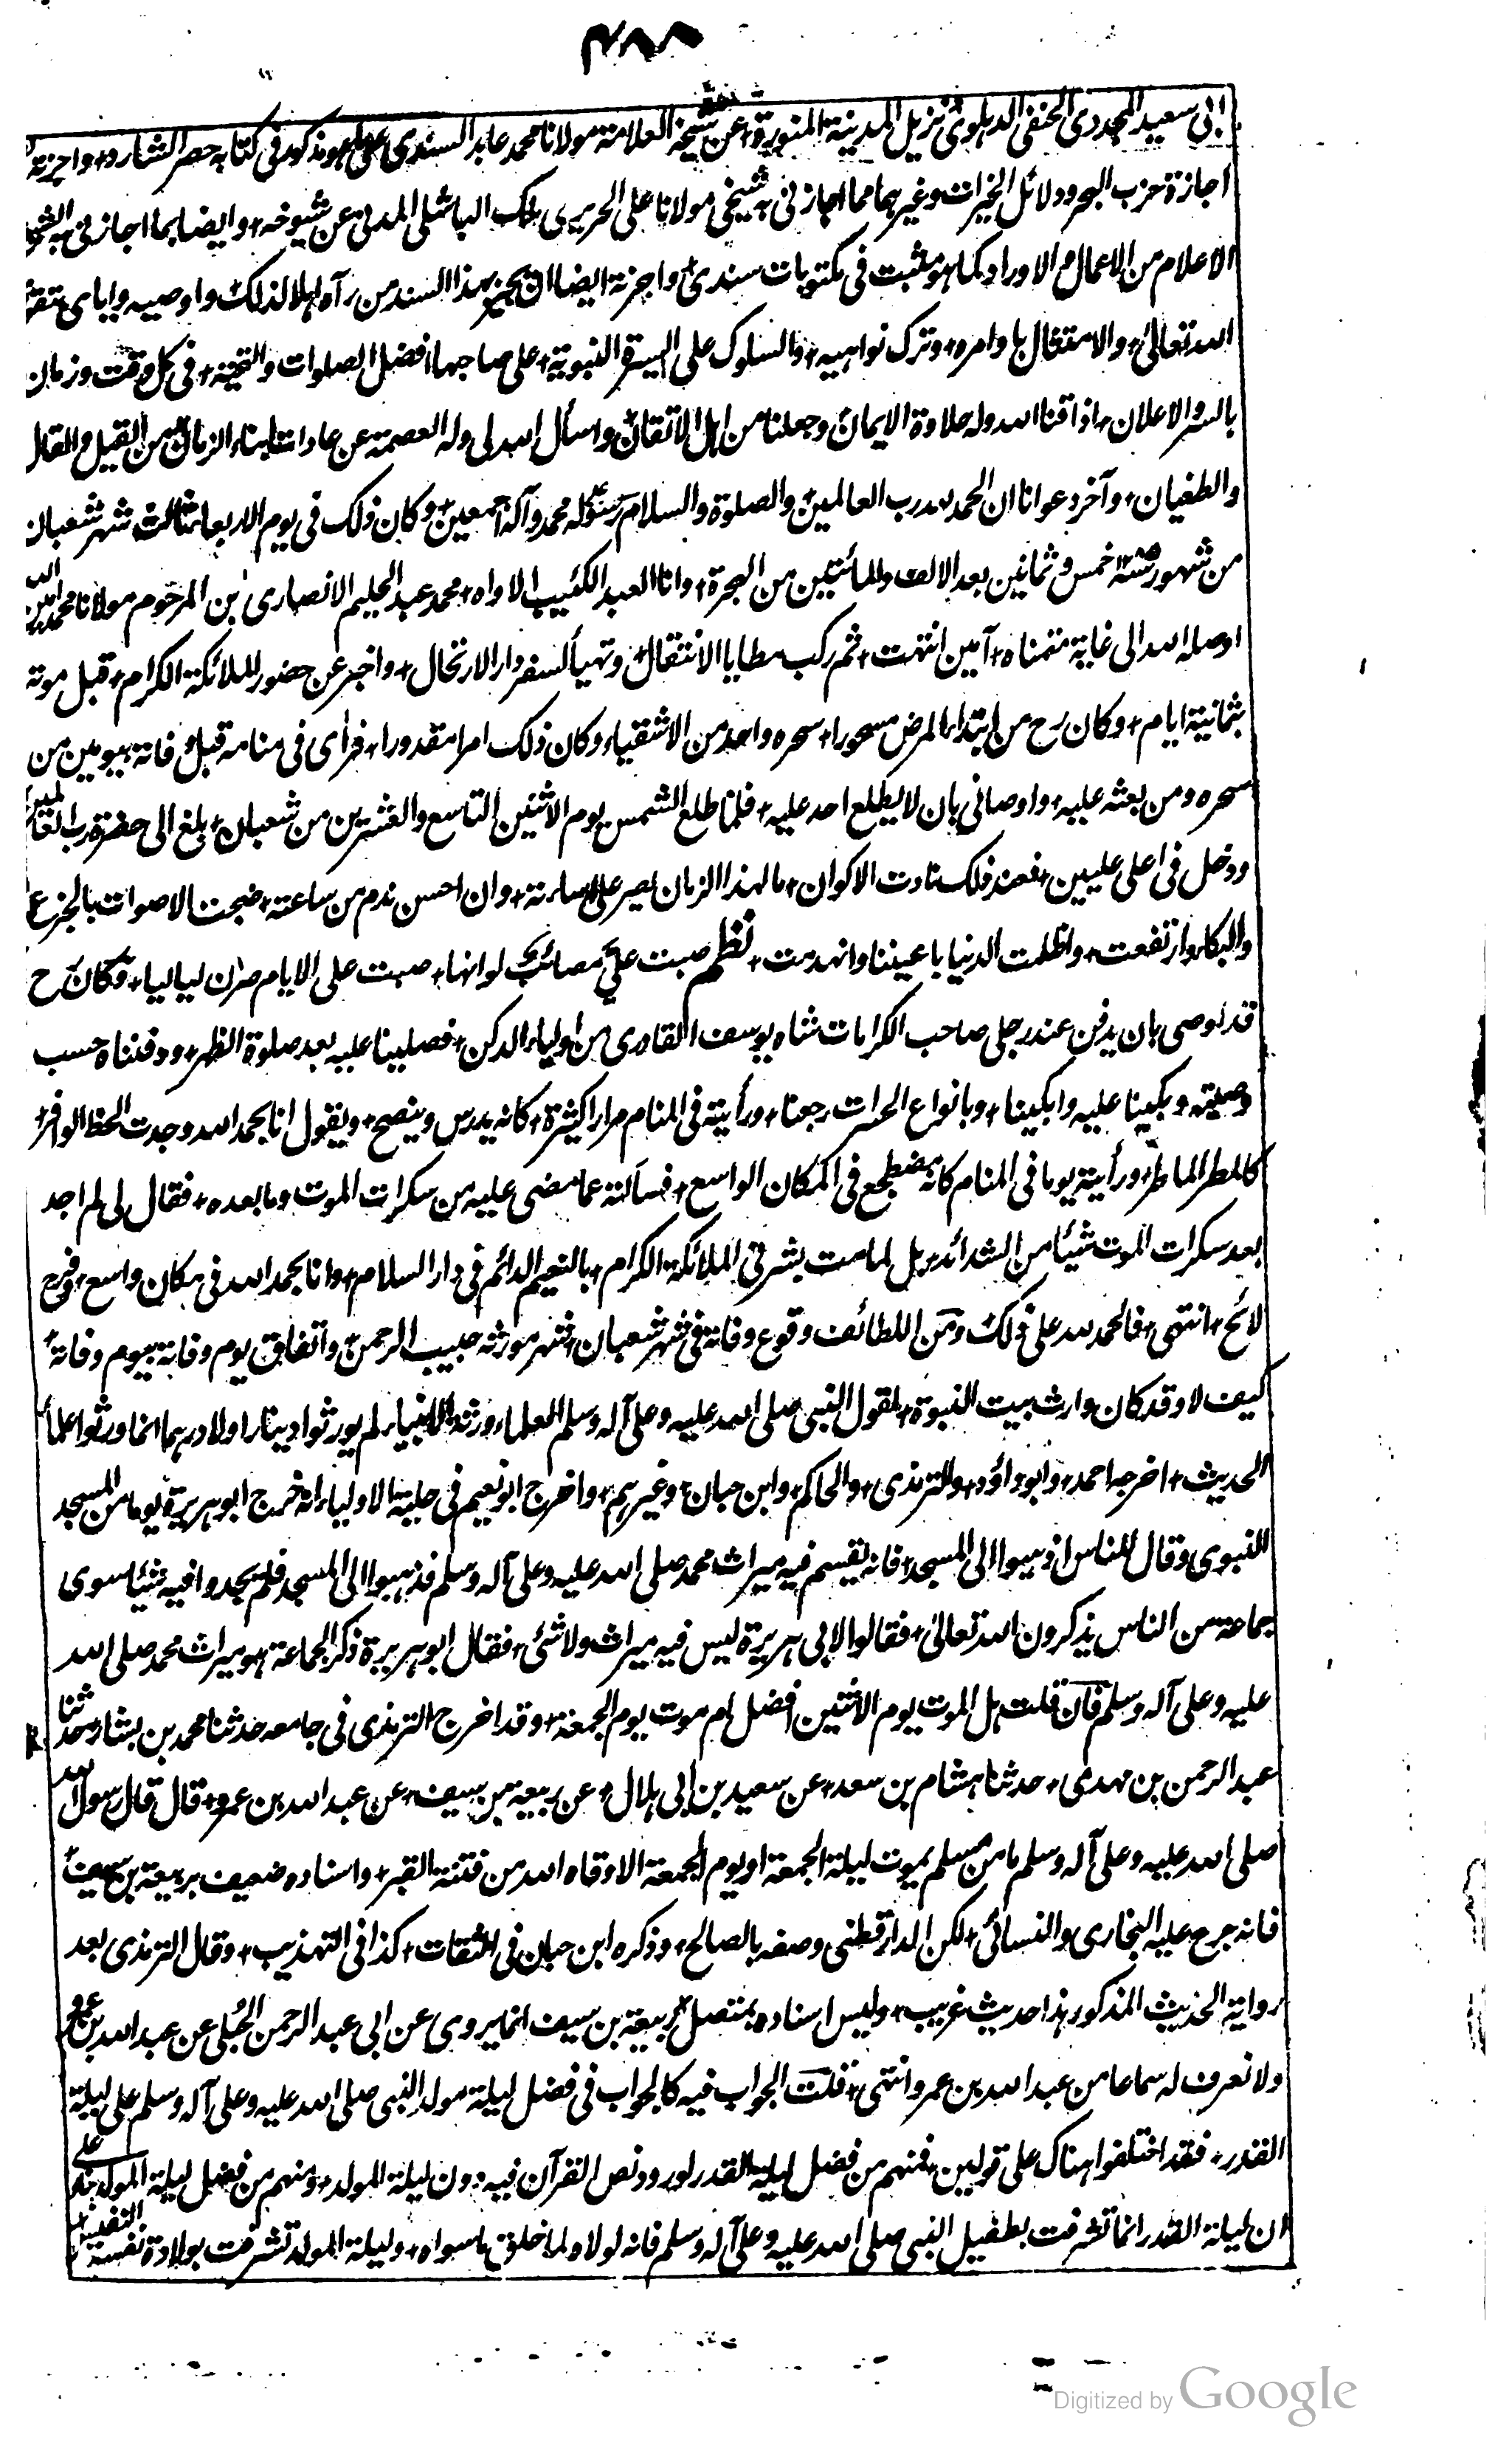 ٤٨٨
ابى سعيد المجددى الحنفى الدهلوى نزيل المدينة المنورة عن شيخه العلامة مولانا محمد عابد السندى على ما هو مذكور فى كتابه حصر الشارد واجزته
اجازة حزب البحر ودلائل الخيرات وغيرهما مما اجازنى به شيخى مولانا على الحريرى ملك الباشلى المدنى عن شيوخه وايضا بما اجازنى به
الاعلام من الاعمال والاوراد كما هو مثبت فى مكتوبات سندى واجزته ايضا ان يجيز بهذا السند من رآه اهلا لذلك واوصيه واياى بتقوى
الله تعالى والامتثال باوامره وترك نواهيه والسلوك على السيرة النبوية على صاحبها افضل الصلوات والتحية فى كل وقت وزمان
بالسر والاعلان اذاقنا الله وله حلاوة الايمان وجعلنا من اهل الاتقان واسأل الله لى وله العصمة عن عادات ابناء الزمان من القيل والقال
والطغيان وآخر دعوانا ان الحمد لله رب العالمين والصلوة والسلام على رسوله محمد وآله اجمعين وكان ذلك فى يوم الاربعاء ثالث شهر شعبان
من شهور سنة خمس وثمانين بعد الالف والمائتين من الهجرة وانا العبد الكئيب الاواه محمد عبد الحليم الانصارى بن المرحوم مولانا محمد امين الله
اوصله الله الى غاية متمناه آمين انتهت ثم ركب مطايا الانتقال وتهيأ لسفر دار الارتحال واخبر عن حضور الملائكة الكرام قبل موته
بثمانية ايام وكان رح من ابتداء المرض مسحورا سحره واحد من الاشقياء وكان ذلك امرا مقدورا فرأى فى منامه قبل وفاته بيومين من
سحره ومن بعثه عليه واوصانى بان لا يطلع احد عليه فلما طلع الشمس يوم الاثنين التاسع والعشرين من شعبان بلغ الى حضرة رب العالمين
ودخل فى اعلى عليين فعند ذلك نادت الاكوان ما لهذا الزمان يصر على اساءته وان احسن ندم من ساعته ضجت الاصوات بالجزع
والبكاء وارتفعت واظلمت الدنيا باعيننا وانهدمت نظم صبت على مصائب لو انها صبت على الايام صرن لياليا وكان رح
قد اوصى بان يدفن عند رجلى صاحب الكرامات شاه يوسف القادرى من اولياء الدكن فصلينا عليه بعد صلوة الظهر ودفناه حسب
وصيته وبكينا عليه وابكينا وبانواع الحسرات رجعنا ورأيته فى المنام مرارا كثيرة كانه يدرس وينصح ويقول انا بحمد الله وجدت الحظ الوافر
كالمطر الماطر ورأيته يوما فى المنام كانه مضطجع فى المكان الواسع فسألته عما مضى عليه من سكرات الموت وما بعده فقال لى لم اجد
بعد سكرات الموت شيئا من الشدائد بل لما مت بشرتنى الملائكة الكرام بالنعيم الدائم فى دار السلام وانا بحمد الله فى مكان واسع وفرح
لائح انتهى فالحمد لله على ذلك ومن اللطائف وقوع وفاته فى شهر شعبان شهر مورثه حبيب الرحمن واتفاق يوم وفاته بيوم وفاته
كيف لا وقد كان وارث بيت النبوة لقول النبى صلى الله عليه وعلى آله وسلم العلماء ورثة الانبياء لم يورثوا دينارا ولا درهما انما ورثوا علما
الحديث اخرجه احمد وابو داؤد والترمذى والحاكم وابن حبان وغيرهم واخرج ابو نعيم فى حلية الاولياء انه خرج ابو هريرة يوما من المسجد
النبوى وقال للناس اذهبوا الى المسجد فانه يقسم فيه ميراث محمد صلى الله عليه وعلى آله وسلم فذهبوا الى المسجد فلم يجدوا فيه شيئا سوى
جماعة من الناس يذكرون الله تعالى فقالوا لابى هريرة ليس فيه ميراث ولا شئ فقال ابو هريرة ذكر الجماعة هو ميراث محمد صلى الله
عليه وعلى آله وسلم فان قلت هل الموت يوم الاثنين افضل ام موت يوم الجمعة وقد اخرج الترمذى فى جامعه حدثنا محمد بن بشار حدثنا
عبد الرحمن بن مهدى حدثنا هشام بن سعد عن سعيد بن ابى هلال عن ربيعة بن سيف عن عبد الله بن عمرو قال قال رسول الله
صلى الله عليه وعلى آله وسلم ما من مسلم يموت ليلة الجمعة او يوم الجمعة الا وقاه الله من فتنة القبر واسناده ضعيف بربيعة بن سيف
فانه جرح عليه البخارى والنسائى لكن الدارقطنى وصفه بالصالح وذكره ابن حبان فى الثقات كذا فى التهذيب وقال الترمذى بعد
رواية الحديث المذكور هذا حديث غريب وليس اسناده بمتصل ربيعة بن سيف انما يروى عن ابى عبد الرحمن الحبلى عن عبد الله بن عمرو
ولا نعرف له سماعا من عبد الله بن عمرو انتهى قلت الجواب فيه كالجواب فى فضل ليلة مولد النبى صلى الله عليه وعلى آله وسلم على ليلة
القدر فقد اختلفوا هناك على قولين فمنهم من فضل ليلة القدر لورود نص القرآن فيه دون ليلة المولد ومنهم من فضل ليلة المولد بناء على
ان ليلة القدر انما تشرفت بطفيل النبى صلى الله عليه وعلى آله وسلم فانه لولاه لما خلق ما سواه وليلة المولد تشرفت بولادة نفسه النفيسة
Digitized by Google